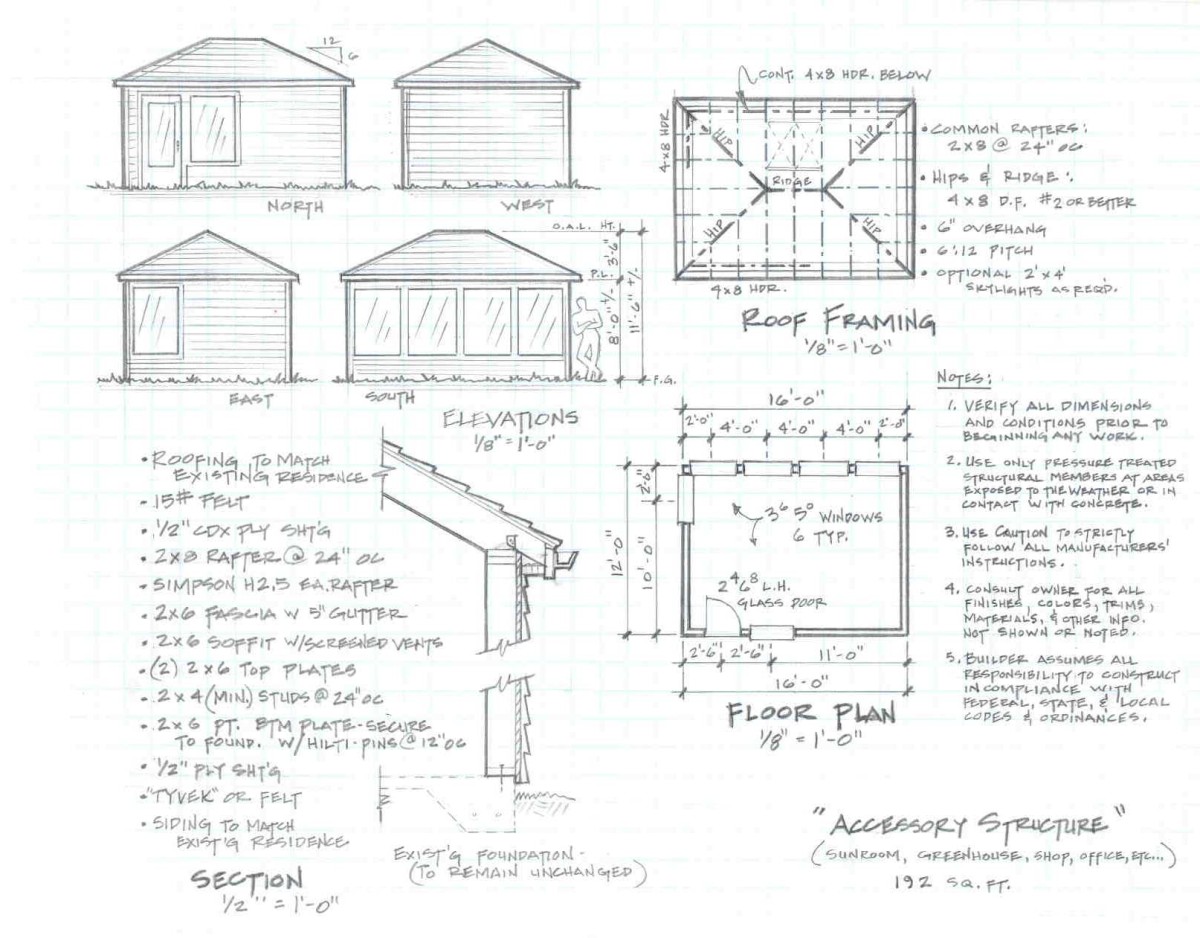 12
6
NORTH
WEST
O.A.L. HT.
3'-6"
P.L.
8'-0" +/-
11'-6" +/-
F.G.
EAST
SOUTH
ELEVATIONS
1/8" = 1'-0"
CONT. 4x8 HDR. BELOW
4x8 HDR
HIP
HIP
RIDGE
HIP
HIP
4x8 HDR.
• COMMON RAFTERS:
2x8 @ 24" OC
• HIPS & RIDGE:
4x8 D.F. #2 OR BETTER
• 6" OVERHANG
• 6:12 PITCH
• OPTIONAL 2'x4'
SKYLIGHTS AS REQ'D.
ROOF FRAMING
1/8" = 1'-0"
• ROOFING TO MATCH
EXISTING RESIDENCE
• 15# FELT
• 1/2" CDX PLY SHT'G
• 2x8 RAFTER @ 24" OC
• SIMPSON H2.5 EA. RAFTER
• 2x6 FASCIA W 5" GUTTER
• 2x6 SOFFIT W/SCREENED VENTS
• (2) 2x6 TOP PLATES
• 2x4 (MIN.) STUDS @ 24" OC
• 2x6 PT. BTM PLATE-SECURE
TO FOUND. W/ HILTI-PINS @ 12" OC
• 1/2" PLY SHT'G
• "TYVEK" OR FELT
• SIDING TO MATCH
EXIST'G RESIDENCE
SECTION
1/2" = 1'-0"
EXIST'G FOUNDATION-
(TO REMAIN UNCHANGED)
16'-0"
2'-0"
4'-0"
4'-0"
4'-0"
2'-0"
2'-0"
12'-0"
10'-0"
3⁶ 5⁰ WINDOWS
6 TYP.
2⁴ 6⁸ L.H.
GLASS DOOR
2'-6"
2'-6"
11'-0"
16'-0"
FLOOR PLAN
1/8" = 1'-0"
NOTES:
1. VERIFY ALL DIMENSIONS
AND CONDITIONS PRIOR TO
BEGINNING ANY WORK.
2. USE ONLY PRESSURE TREATED
STRUCTURAL MEMBERS AT AREAS
EXPOSED TO THE WEATHER OR IN
CONTACT WITH CONCRETE.
3. USE CAUTION TO STRICTLY
FOLLOW ALL MANUFACTURERS'
INSTRUCTIONS.
4. CONSULT OWNER FOR ALL
FINISHES, COLORS, TRIMS,
MATERIALS, & OTHER INFO.
NOT SHOWN OR NOTED.
5. BUILDER ASSUMES ALL
RESPONSIBILITY TO CONSTRUCT
IN COMPLIANCE WITH
FEDERAL, STATE, & LOCAL
CODES & ORDINANCES.
"ACCESSORY STRUCTURE"
(SUNROOM, GREENHOUSE, SHOP, OFFICE, ETC...)
192 SQ. FT.